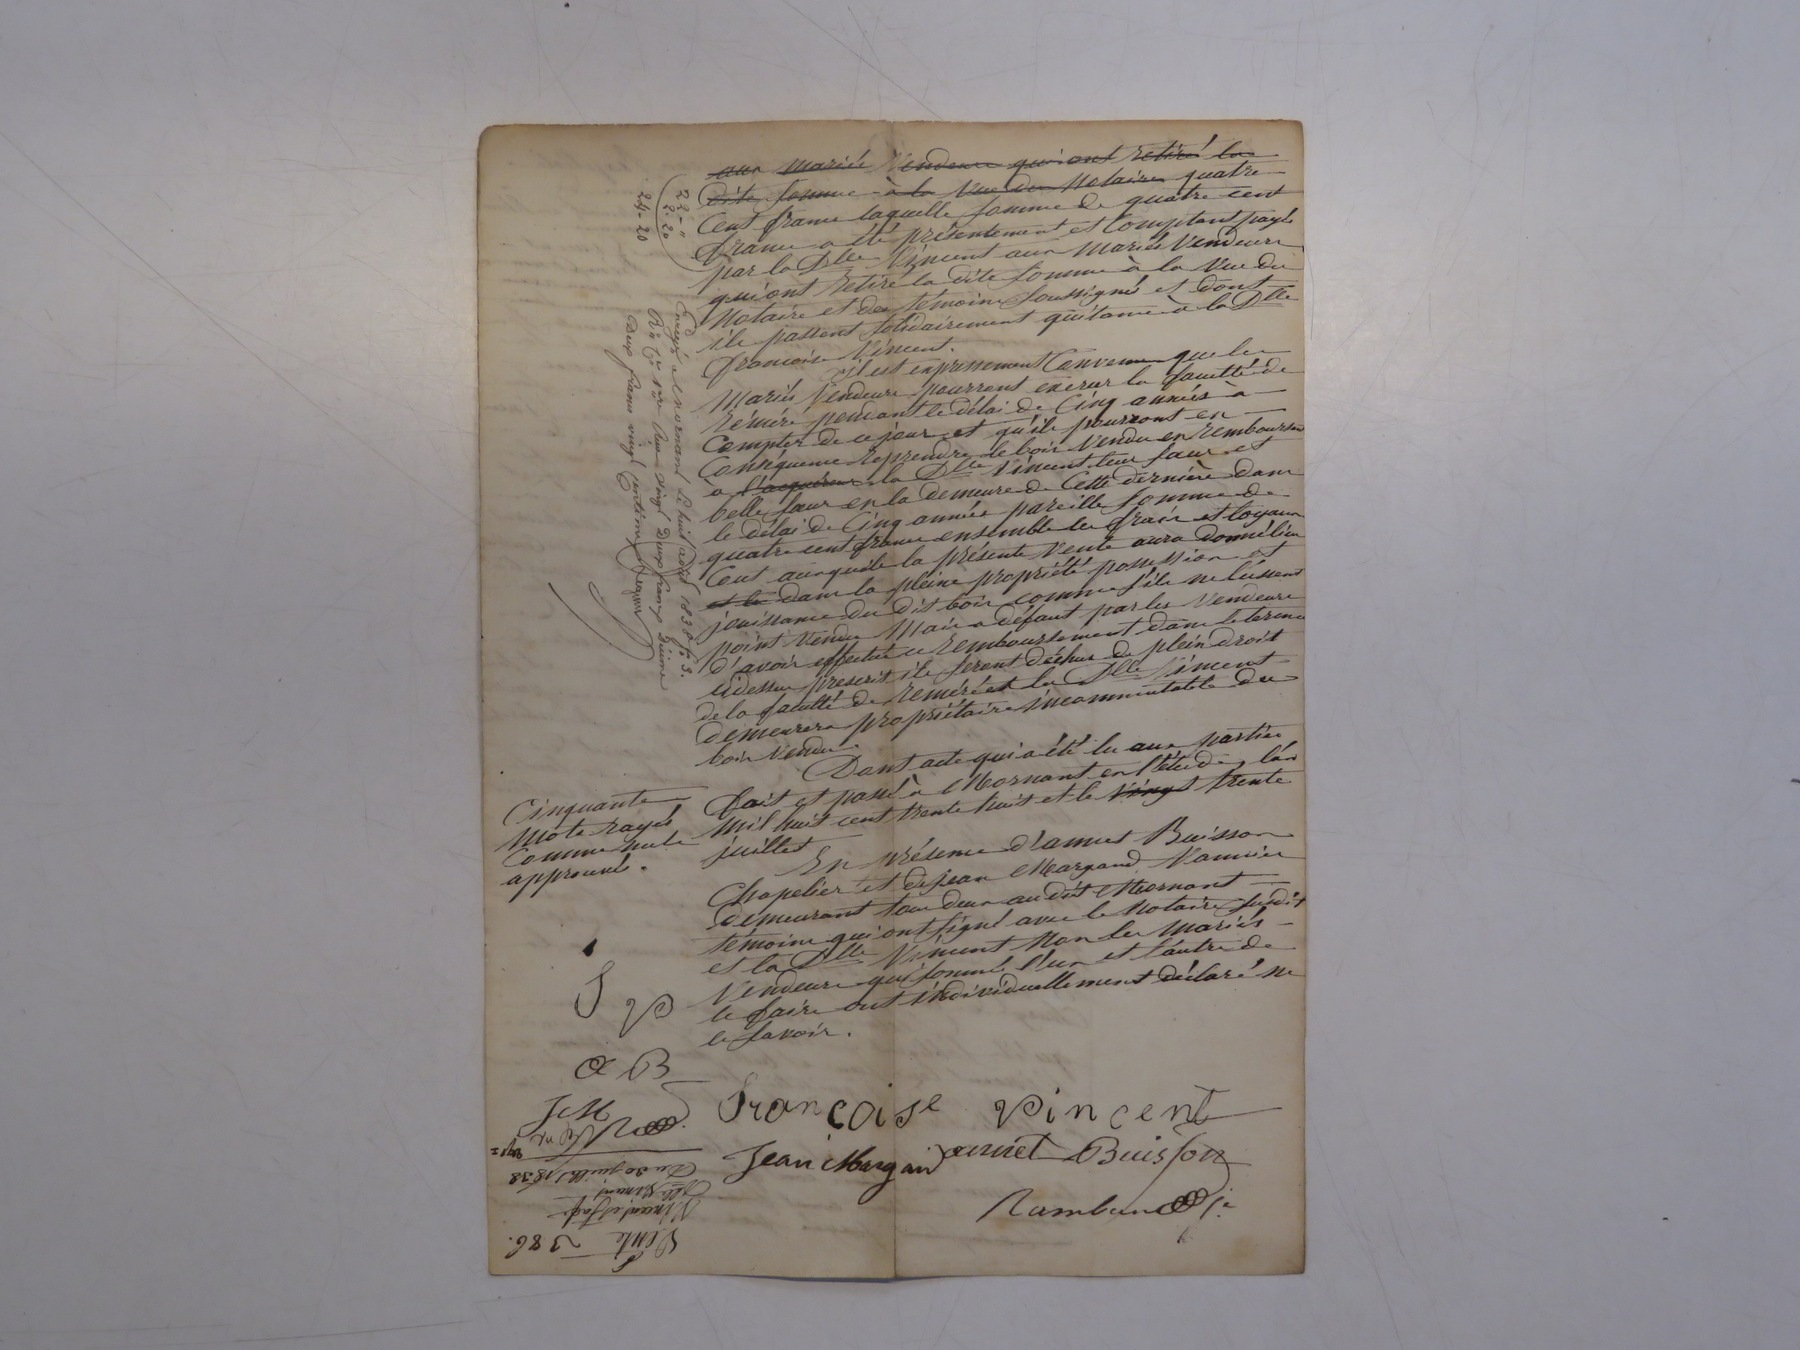 aux mariés Vendeurs qui ont retiré la
dite somme à la vue du Notaire quatre
Cent francs laquelle somme de quatre cent
francs a été présentement et Comptant payé
par la Dlle Vincent aux mariés Vendeurs
qui ont retiré la dite somme à la vue du
Notaire et des témoins soussignés et dont
ils passent solidairement quitance à la Dlle
françoise Vincent.
il est expressement Convenu que les
Mariés Vendeurs pourront exercer la faculté de
réméré pendant le délai de Cinq années à
Compter de ce jour et qu'ils pourront en
Conséquence reprendre le bois Vendu en remboursant
a l'acquéreur la Dlle Vincent leur sœur et
belle sœur en la demeure de Cette dernière dans
le délai de Cinq années pareille somme de
quatre cent francs ensemble les frais et loyaux
Cout auxquels la présente Vente aura donné lieu
et les dans la pleine propriété possession et
jouissance du dit bois comme s'ils ne l'eussent
point Vendu Mais a défaut par les Vendeurs
d'avoir effectué ce remboursement dans le terme
cidessus prescrit ils seront déchus de plein droit
de la faculté de reméré et la Dlle Vincent
demeurera propriétaire incommutable du
bois Vendu.
Dont acte qui a été lu aux parties
fait et passé à Mornant en l'étude, l'an
Mil huit cent trente huit et le vingt trente
juillet
En présence d'annet Buisson
Chapelier et de jean Margand Vannier
demeurant tous deux au dit Mornant
témoins qui ont signé avec le Notaire susdit
et la Dlle Vincent Non les Mariés
Vendeurs qui sommé l'un et l'autre de
le faire ont individuellement déclaré ne
le savoir.
22 - "
2. 20
24. 20
Enregé à Mornant le huit août 1838 fo
Rs vingt Deux francs Décime
Deux francs vingt Centimes
Cinquante
Mots rayés
Comme nuls
approuvés.
f V
a B
J M
françoise Vincent
Jean Margand annet Buisson
Vente 386.
Vincent
Dlle Vincent
Du 30 juillet 1838